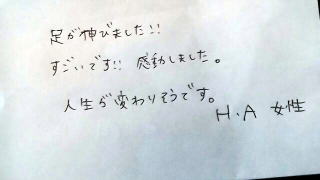 足が伸びました!!
すごいです!! 感動しました。
人生が変わりそうです。
H.A 女性